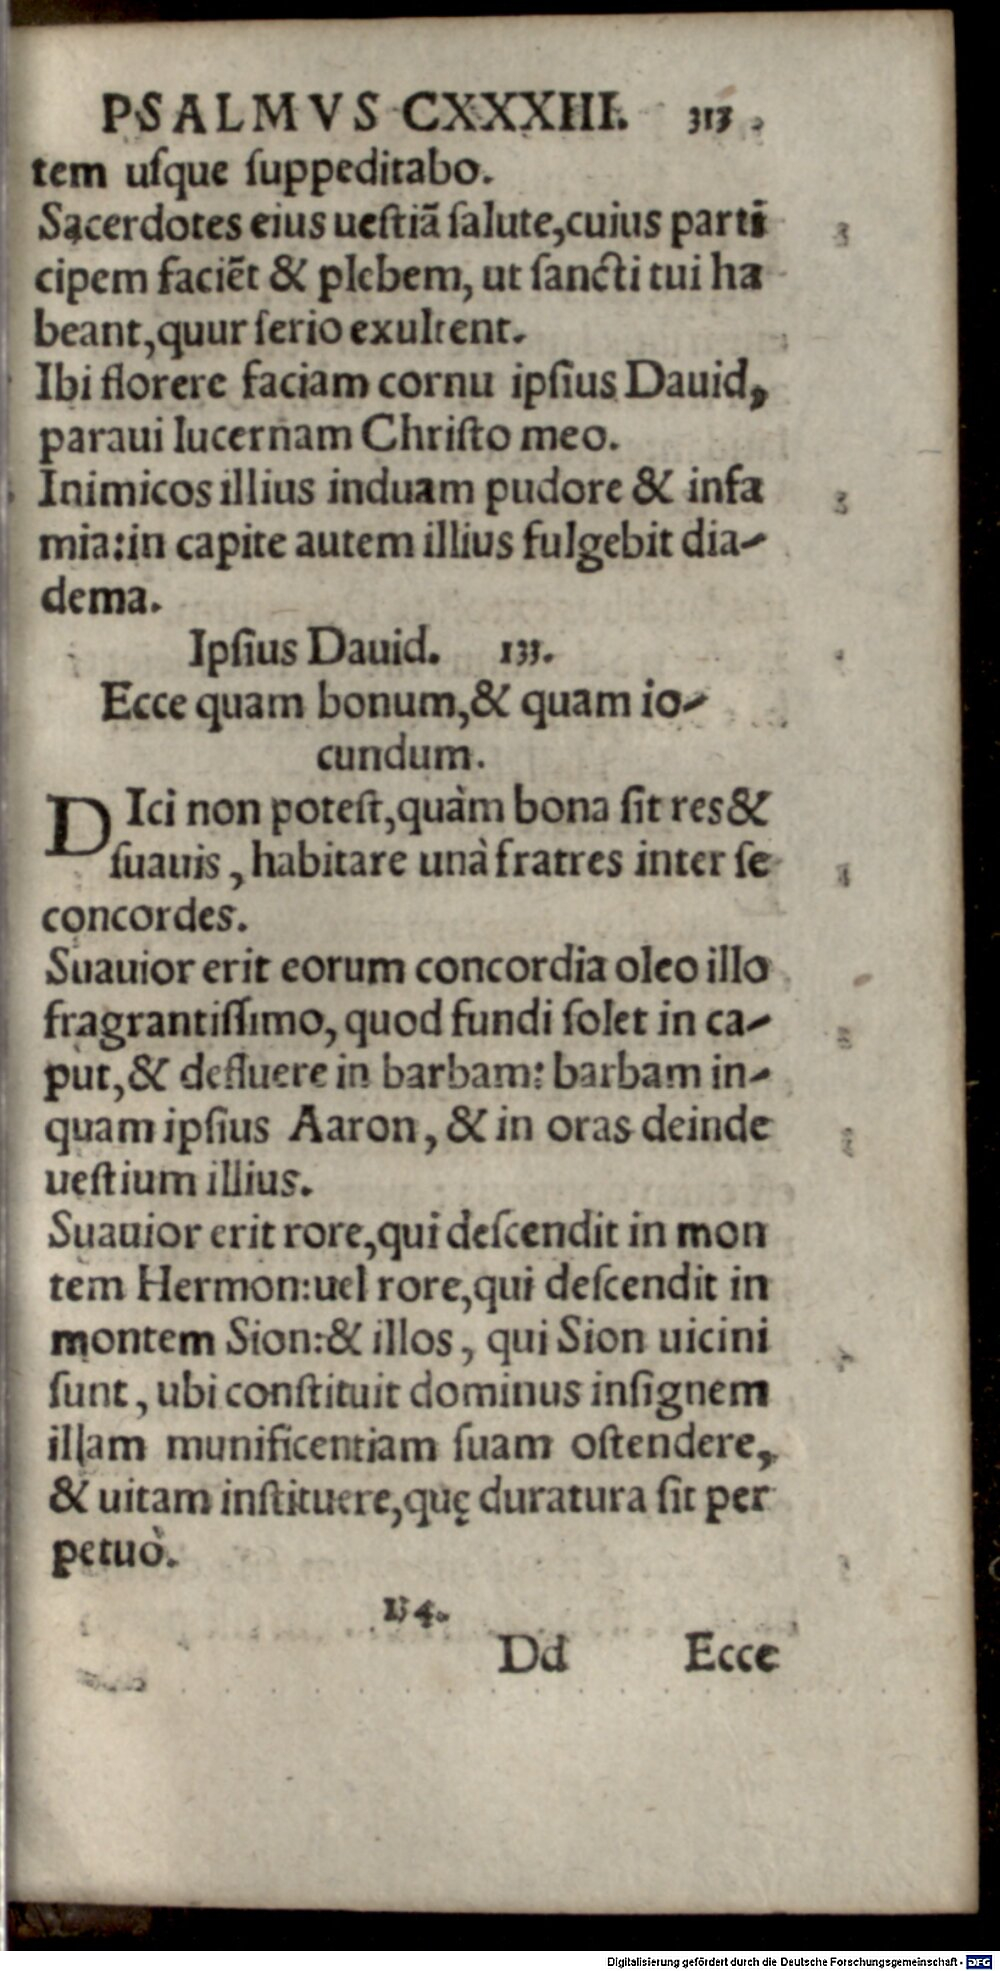 PSALMVS CXXXIII. 313.
tem uſque ſuppeditabo.
Sacerdotes eius ueſtiã ſalute,cuius parti
cipem faciẽt & plebem, ut ſancti tui ha
beant,quur ſerio exultent.
Ibi florere faciam cornu ipſius Dauid,
paraui lucernam Chriſto meo.
Inimicos illius induam pudore & infa
mia:in capite autem illius fulgebit dia-
dema.
Ipſius Dauid. 133.
Ecce quam bonum,& quam io-
cundum.
DIci non poteſt,quàm bona ſit res &
ſuauis , habitare unà fratres inter ſe
concordes.
Suauior erit eorum concordia oleo illo
fragrantiſſimo, quod fundi ſolet in ca-
put,& defluere in barbam: barbam in-
quam ipſius Aaron, & in oras deinde
ueſtium illius.
Suauior erit rore,qui deſcendit in mon
tem Hermon:uel rore,qui deſcendit in
montem Sion:& illos, qui Sion uicini
ſunt, ubi conſtituit dominus inſignem
illam munificentiam ſuam oſtendere,
& uitam inſtituere,quę duratura ſit per
petuò.
134.
Dd Ecce
Digitalisierung gefördert durch die Deutsche Forschungsgemeinschaft - DFG